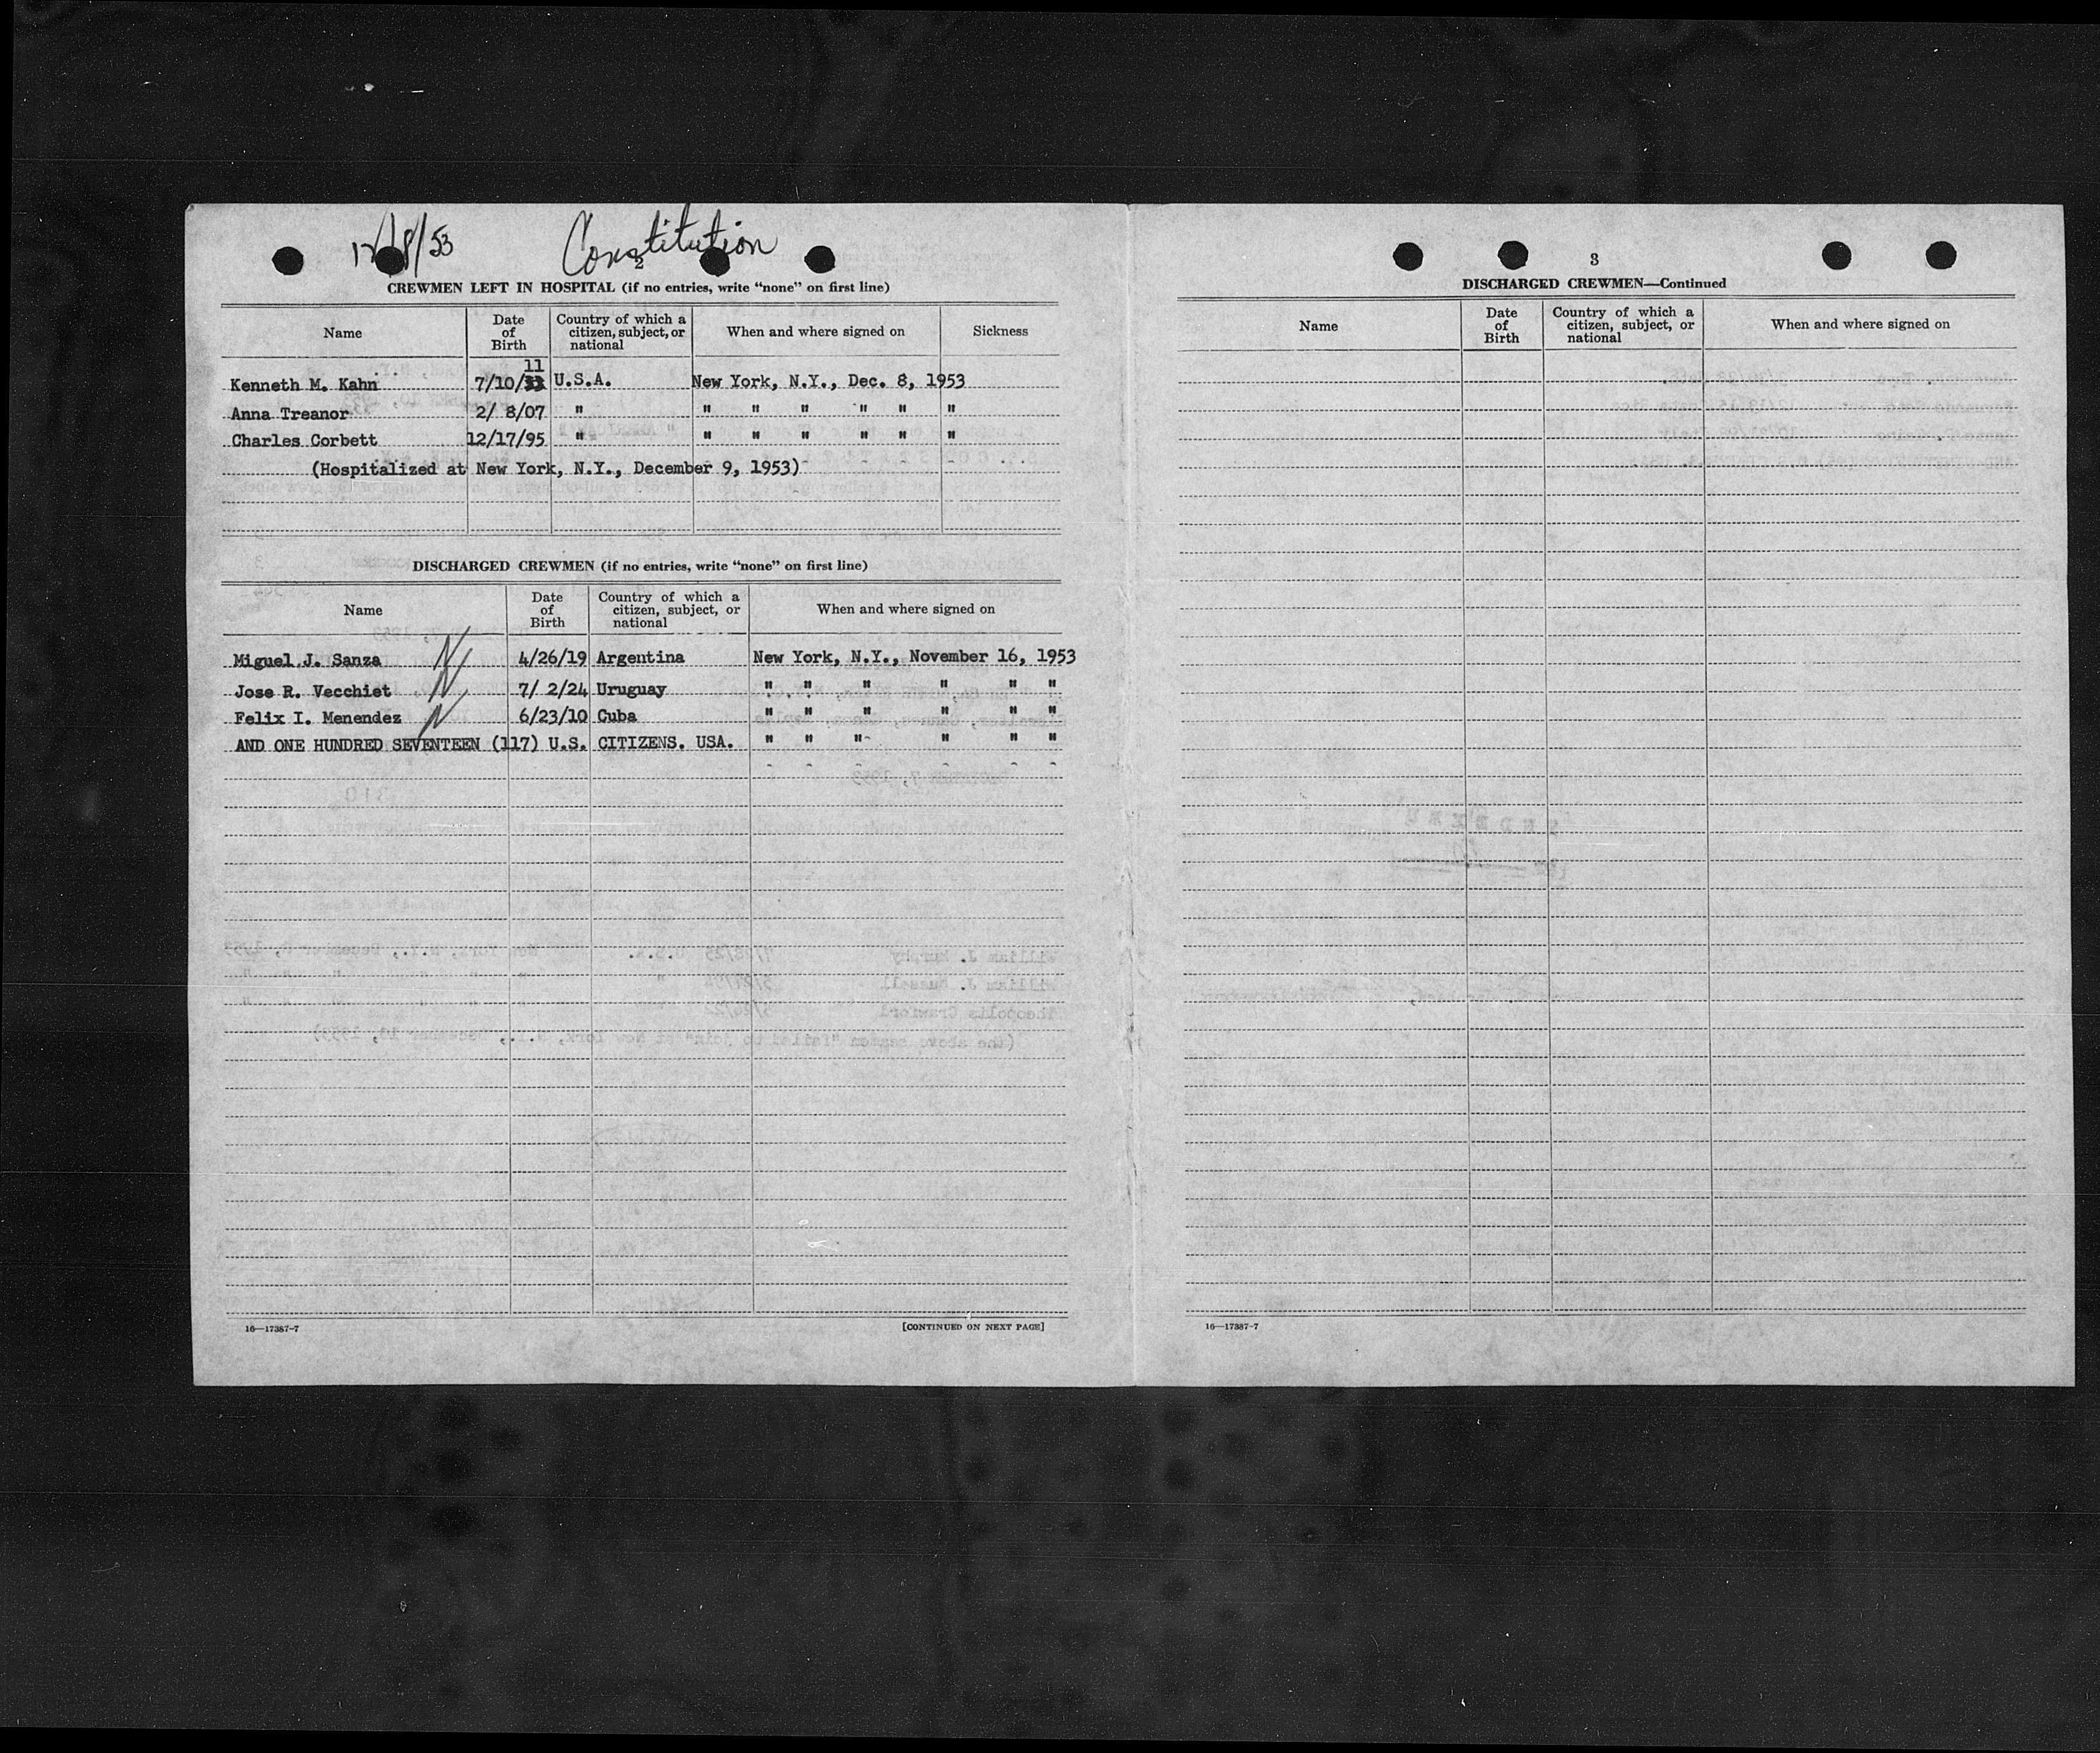 12/8/53 Constitution
2
CREWMEN LEFT IN HOSPITAL (if no entries, write "none" on first line)
Name Date of Birth Country of which a citizen, subject, or national When and where signed on Sickness
11
Kenneth M. Kahn 7/10/33 U.S.A. New York, N.Y., Dec. 8, 1953
Anna Treanor 2/ 8/07 " " " " " " "
Charles Corbett 12/17/95 " " " " " " "
(Hospitalized at New York, N.Y., December 9, 1953)
DISCHARGED CREWMEN (if no entries, write "none" on first line)
Name Date of Birth Country of which a citizen, subject, or national When and where signed on
Miguel J. Sanza N 4/26/19 Argentina New York, N.Y., November 16, 1953
Jose R. Vecchiet N 7/ 2/24 Uruguay " " " " " "
Felix I. Menendez N 6/23/10 Cuba " " " " " "
AND ONE HUNDRED SEVENTEEN (117) U.S. CITIZENS. USA. " " " " " "
16—17387-7 [CONTINUED ON NEXT PAGE]
3
DISCHARGED CREWMEN—Continued
Name Date of Birth Country of which a citizen, subject, or national When and where signed on
16—17387-7